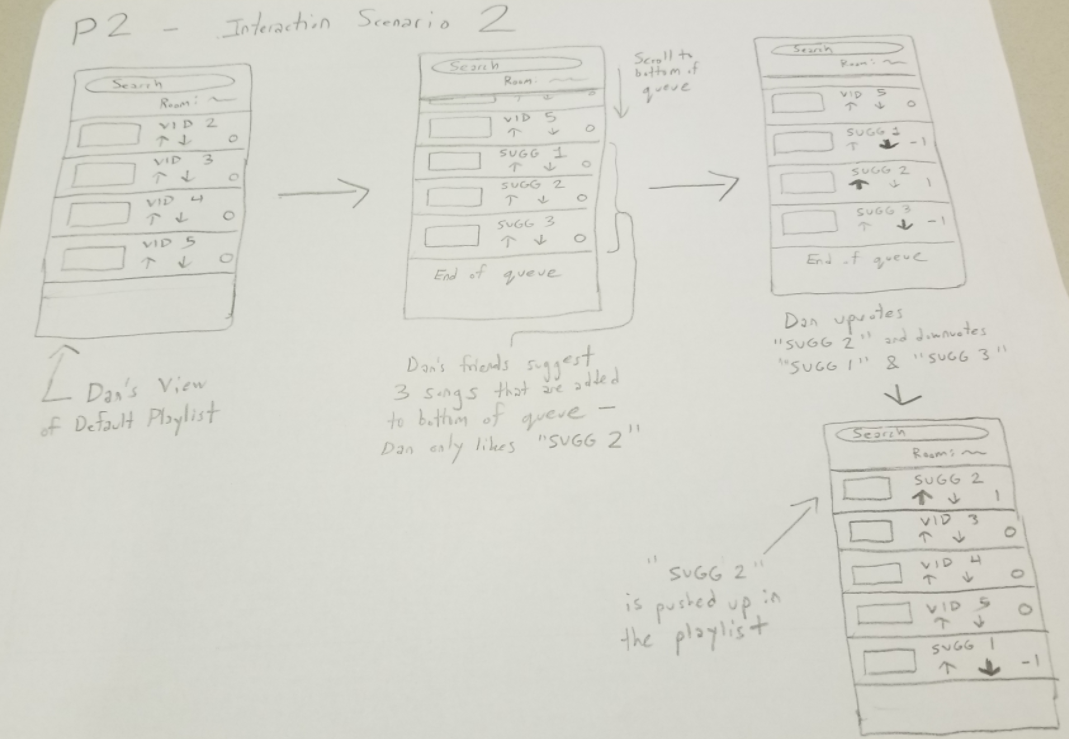 P2 - Interaction Scenario 2
Search
Room:
VID 2
↑ ↓ 0
VID 3
↑ ↓ 0
VID 4
↑ ↓ 0
VID 5
↑ ↓ 0
Dan's View
of Default Playlist
Search
Room:
↑ ↓ 0
VID 5
↑ ↓ 0
SUGG 1
↑ ↓ 0
SUGG 2
↑ ↓ 0
SUGG 3
↑ ↓ 0
End of queue
Scroll to
bottom of
queue
Dan's friends suggest
3 songs that are added
to bottom of queue -
Dan only likes "SUGG 2"
Search
Room:
VID 5
↑ ↓ 0
SUGG 1
↑ ↓ -1
SUGG 2
↑ ↓ 1
SUGG 3
↑ ↓ -1
End of queue
Dan upvotes
"SUGG 2" and downvotes
"SUGG 1" & "SUGG 3"
Search
Room:
SUGG 2
↑ ↓ 1
VID 3
↑ ↓ 0
VID 4
↑ ↓ 0
VID 5
↑ ↓ 0
SUGG 1
↑ ↓ -1
"SUGG 2"
is pushed up in
the playlist